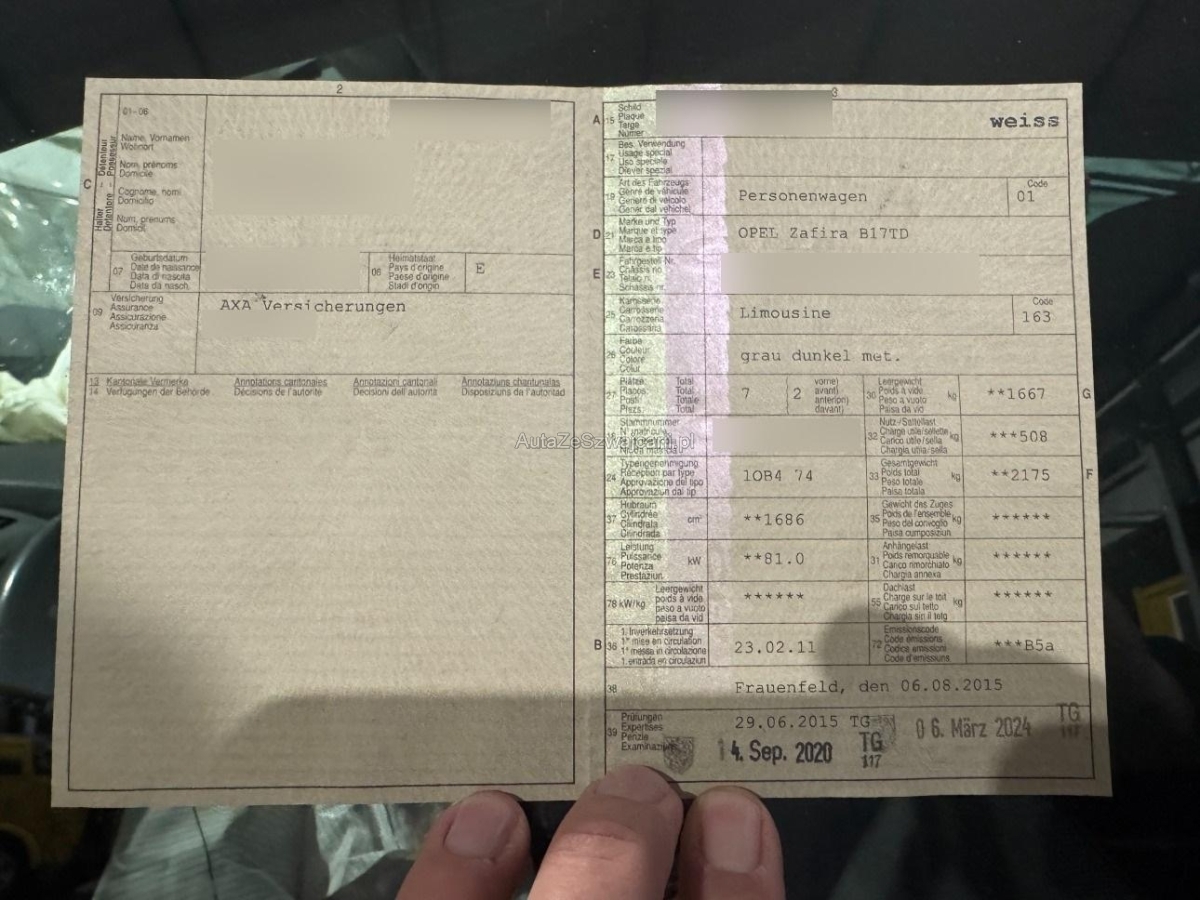 2
01-06
C
Halter Détenteur
Detentore Possessur
Name, Vornamen
Wohnort
Nom, prénoms
Domicile
Cognome, nomi
Domicilio
Num, prenums
Domicil
07
Geburtsdatum
Date de naissance
Data di nascita
Data da nasch.
08
Heimatstaat
Pays d'origine
Paese d'origine
Stadi d'origin
E
09
Versicherung
Assurance
Assicurazione
Assicuranza
AXA Versicherungen
13 Kantonale Vermerke Annotations cantonales Annotazioni cantonali Annotaziuns chantunalas
14 Verfügungen der Behörde Décisions de l'autorité Decisioni dell'autorità Disposiziuns da l'autoritad
3
A 15
Schild
Plaque
Targa
Numer
weiss
17
Bes. Verwendung
Usage spécial
Uso speciale
Diever spezial
19
Art des Fahrzeugs
Genre de véhicule
Genere di veicolo
Gener dal vehichel
Personenwagen
Code
01
D 21
Marke und Typ
Marque et type
Marca e tipo
Marca e tip
OPEL Zafira B17TD
E 23
Fahrgestell Nr.
Châssis no.
Telaio n.
Schassis nr.
25
Karosserie
Carrosserie
Carrozzeria
Carossaria
Limousine
Code
163
26
Farbe
Couleur
Colore
Colur
grau dunkel met.
27
Plätze Total
Places Total
Posti Totale
Plazs Total
7
2
vorne)
avant)
anteriori)
davant)
30
Leergewicht
Poids à vide
Peso a vuoto
Paisa da vid
kg
**1667
G
Stammnummer
N° matricule
32
Nutz-/Sattellast
Charge utile/sellette
Carico utile/sella
Chargia utila/sella
kg
***508
AutaZeSzwajcarii.pl
24
Typengenehmigung
Réception par type
Approvazione del tipo
Approvaziun dal tip
1OB4 74
33
Gesamtgewicht
Poids total
Peso totale
Paisa totala
kg
**2175
F
37
Hubraum
Cylindrée
Cilindrata
Cilindrada
cm³
**1686
35
Gewicht des Zuges
Poids de l'ensemble
Peso del convoglio
Paisa cumposiziun
kg
******
76
Leistung
Puissance
Potenza
Prestaziun
kW
**81.0
31
Anhängelast
Poids remorquable
Carico rimorchiato
Chargia annexa
kg
******
78 kW/kg
Leergewicht
poids à vide
peso a vuoto
paisa da vid
******
55
Dachlast
Charge sur le toit
Carico sul tetto
Chargia sin il tetg
kg
******
B 36
1. Inverkehrsetzung
1re mise en circulation
1a messa in circolazione
1. entrada en circulaziun
23.02.11
72
Emissionscode
Code émissions
Codice emissioni
Code d'emissiuns
***B5a
38
Frauenfeld, den 06.08.2015
39
Prüfungen
Expertises
Perizie
Examinaziuns
29.06.2015 TG
14. Sep. 2020
TG
117
06. März 2024
TG
117